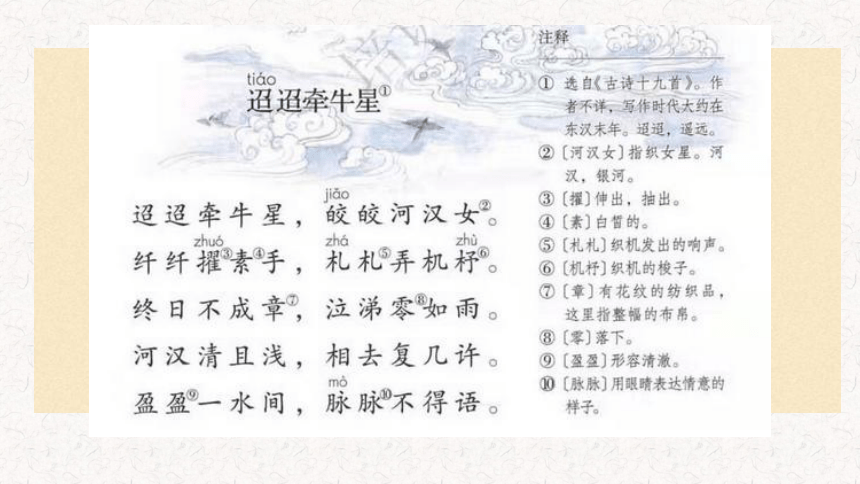 tiáo
迢迢牵牛星①
jiǎo
迢迢牵牛星，皎皎河汉女②。
zhuó zhá zhù
纤纤擢③素④手，札札⑤弄机杼⑥。
终日不成章⑦，泣涕零⑧如雨。
河汉清且浅，相去复几许。
mò
盈盈⑨一水间，脉脉⑩不得语。
注释
① 选自《古诗十九首》。作
者不详，写作时代大约在
东汉末年。迢迢，遥远。
②〔河汉女〕指织女星。河
汉，银河。
③〔擢〕伸出，抽出。
④〔素〕白皙的。
⑤〔札札〕织机发出的响声。
⑥〔机杼〕织机的梭子。
⑦〔章〕有花纹的纺织品，
这里指整幅的布帛。
⑧〔零〕落下。
⑨〔盈盈〕形容清澈。
⑩〔脉脉〕用眼睛表达情意的
样子。